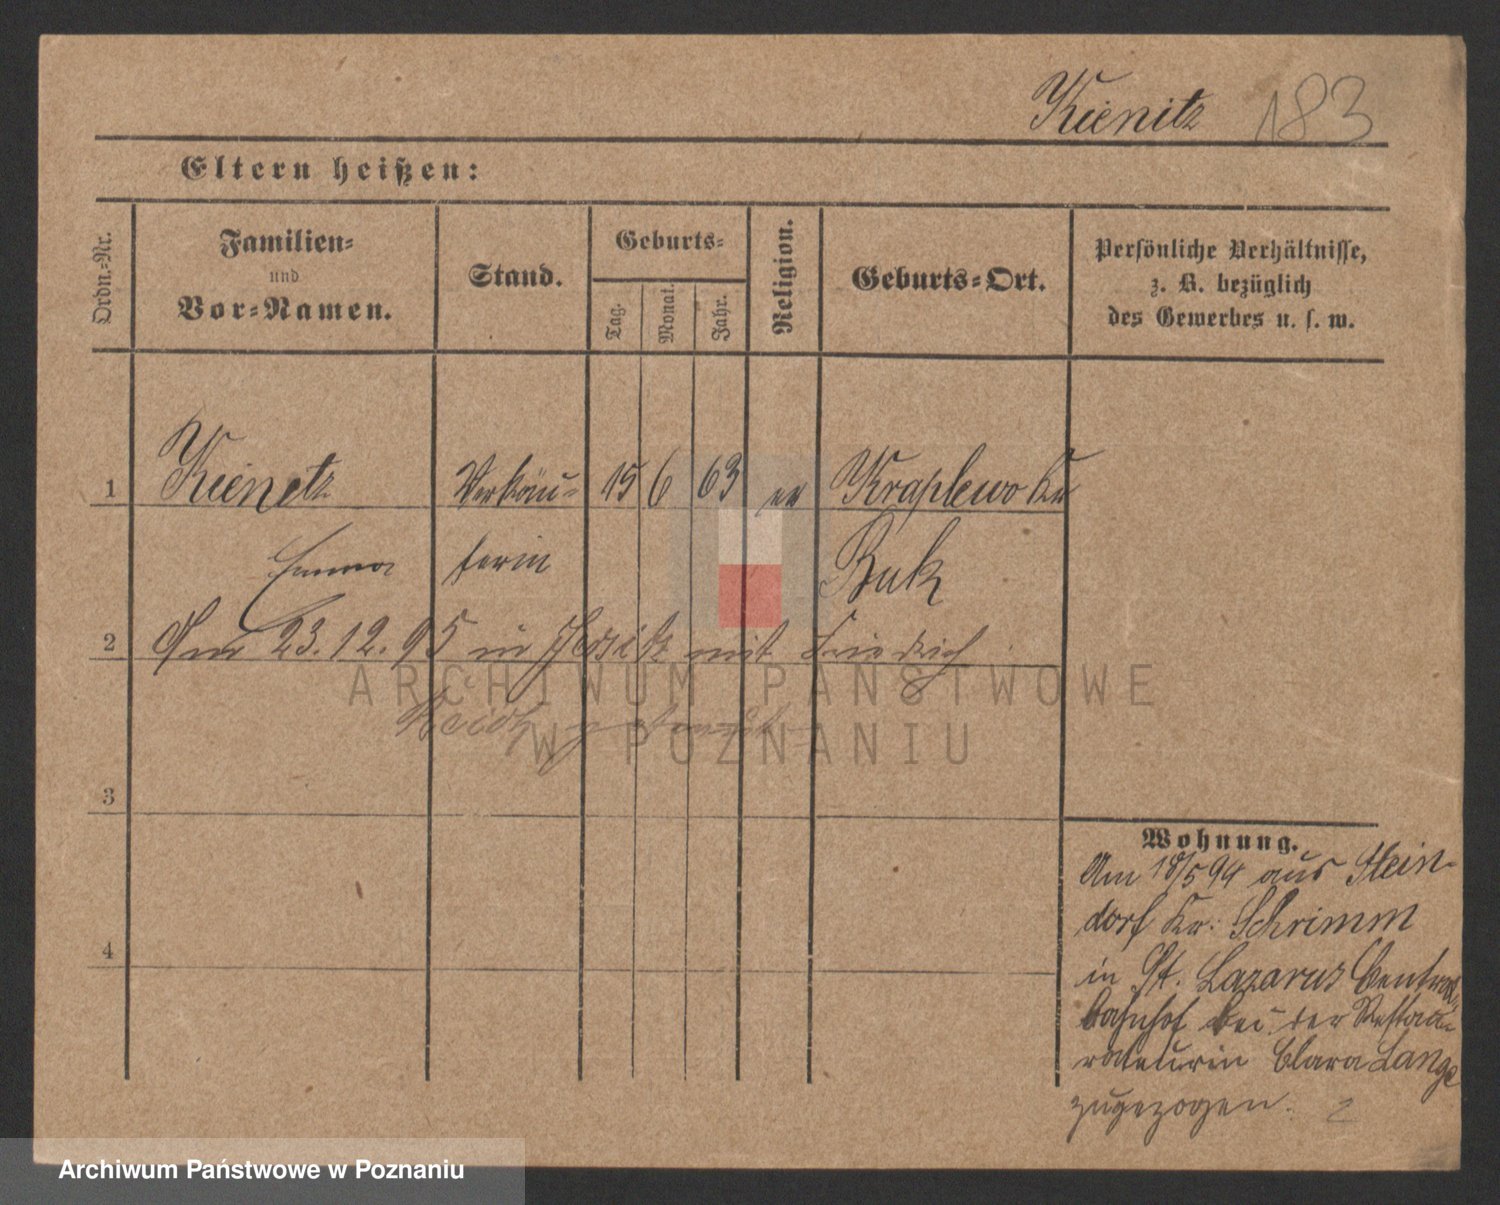 Kienitz 183
Eltern heißen:
Ordn.-Nr.
Familien-
und
Vor-Namen.
Stand.
Geburts-
Tag.
Monat.
Jahr.
Religion.
Geburts-Ort.
Persönliche Verhältnisse,
z. B. bezüglich
des Gewerbes u. s. w.
1 Kienitz Verkäu- 15 6 63 ev Kraplewo Kr
Emma ferin Buk
2 Am 23.12.95 in Jersitz mit Friedrich
ARCHIWUM PAŃSTWOWE
W POZNANIU
3
4
Wohnung.
Am 18/5 94 aus Stein-
dorf Kr. Schrimm
in St. Lazarus Central-
bahnhof bei der Restau-
rateurin Clara Lange
zugezogen.
Archiwum Państwowe w Poznaniu